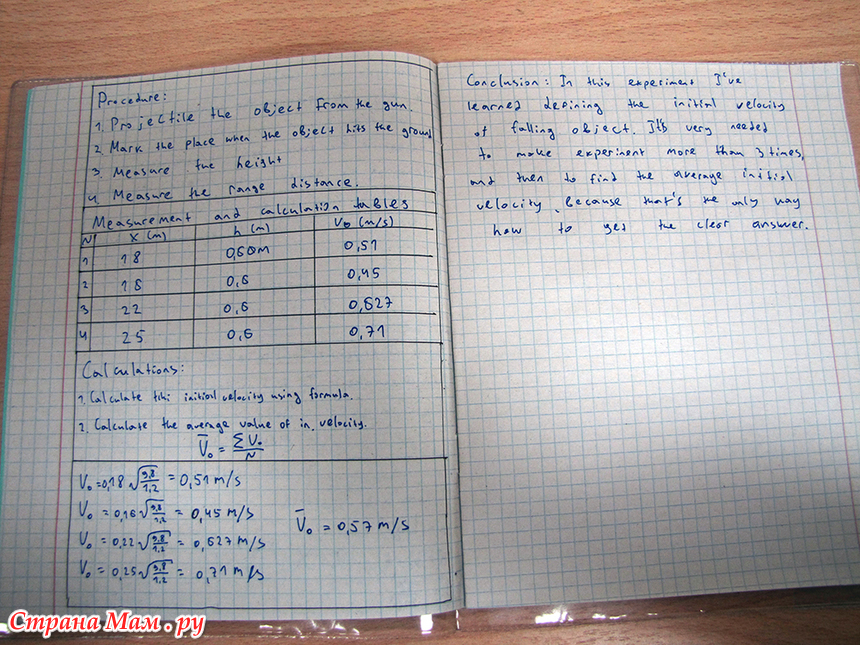 Procedure:
1. Projectile the object from the gun.
2. Mark the place when the object hits the ground
3. Measure the height
4. Measure the range distance.
Measurement and calculation tables
N X (m) h (m) V₀ (m/s)
1 18 0,60m 0,51
2 16 0,6 0,45
3 22 0,6 0,627
4 25 0,6 0,71
Calculations:
1. Calculate the initial velocity using formula.
2. Calculate the average value of in. velocity.
V̄₀ = ΣV₀/N
V₀ = 0,18 √(9,8/1,2) = 0,51 m/s
V₀ = 0,16 √(9,8/1,2) = 0,45 m/s
V₀ = 0,22 √(9,8/1,2) = 0,627 m/s
V₀ = 0,25 √(9,8/1,2) = 0,71 m/s
V̄₀ = 0,57 m/s
Conclusion: In this experiment I've
learned defining the initial velocity
of falling object. It's very needed
to make experiment more than 3 times,
and then to find the average initial
velocity, because that's the only way
how to get the clear answer.
Страна Мам.ру